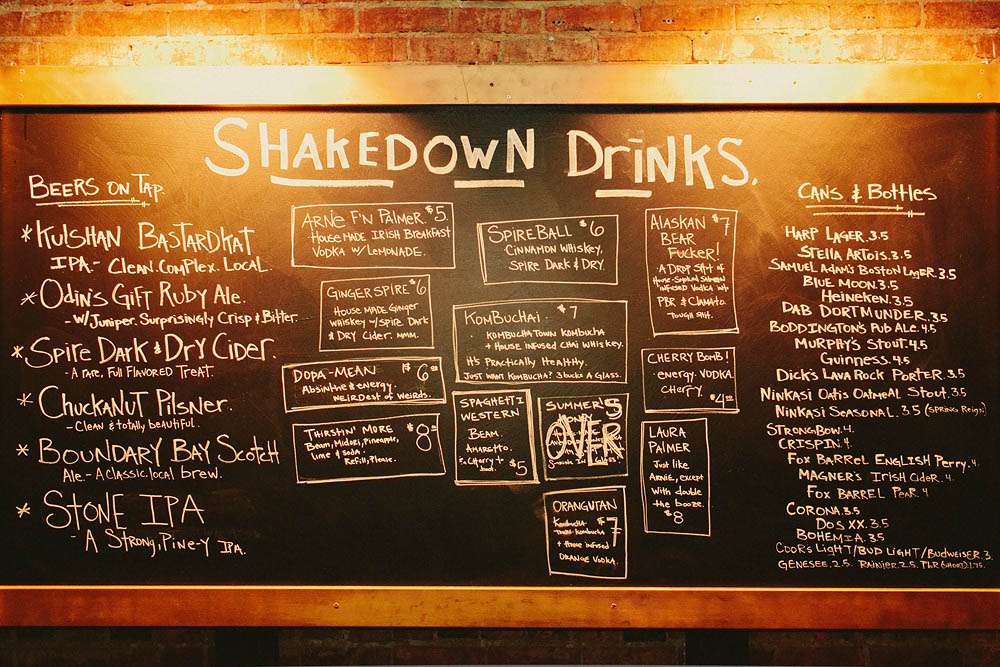 SHAKEDOWN DRINKS.
BEERS ON TAP.
*KULSHAN BASTARDKAT
IPA - CLEAN. COMPLEX. LOCAL.
*ODIN'S GIFT RUBY ALE.
- W/ JUNIPER. SURPRISINGLY CRISP & BITTER.
*SPIRE DARK & DRY CIDER.
- A RARE, FULL FLAVORED TREAT.
*CHUCKANUT PILSNER.
- CLEAN & totally beautiful.
*BOUNDARY BAY SCOTCH
ALE - A CLASSIC, local brew.
*STONE IPA
- A STRONG, PINE-Y IPA.
ARNE F'N PALMER. $5.
HOUSE MADE IRISH BREAKFAST
VODKA W/ LEMONADE.
GINGERSPIRE $6
HOUSE MADE GINGER
WHISKEY W/ SPIRE DARK
& DRY CIDER. MMM.
DOPA-MEAN $6
Absinthe & energy.
WEIRDEST of WEIRDS.
THIRSTIN' MORE $8
Beam, Midori, Pineapple,
Lime & SODA.
Refill, Please.
SPIREBALL $6
CINNAMON WHISKEY,
SPIRE DARK & DRY
KOMBUCHAI. $7
KOMBUCHA TOWN KOMBUCHA
+ HOUSE INFUSED CHAI WHISKEY.
IT'S PRACTICALLY HEALTHY.
JUST WANT KOMBUCHA? 3 bucks A GLASS.
SPAGHETTI
WESTERN
BEAM.
AMARETTO.
CHERRY +
$5
SUMMER'S
OVER
ORANGUTAN $7
Kombucha
TOWN Kombucha
+ House infused
ORANGE VODKA.
ALASKAN $7
BEAR
FUCKER!
A DROP SHOT of
HOUSE-SMOKED SALMON
INFUSED VODKA W/
PBR & CLAMATO.
TOUGH SHIT.
CHERRY BOMB!
- energy. VODKA.
CHERRY. $4
LAURA
PALMER
Just like
ARNIE, EXCEPT
WITH double
the booze.
$8
CANS & BOTTLES
HARP LAGER. 3.5
STELLA ARTOIS. 3.5
SAMUEL ADAM'S BOSTON LAGER. 3.5
BLUE MOON. 3.5
HEINEKEN. 3.5
DAB DORTMUNDER. 3.5
BODDINGTON'S PUB ALE. 4.5
MURPHY'S STOUT. 4.5
GUINNESS. 4.5
DICK'S LAVA ROCK PORTER. 3.5
NINKASI OATIS OATMEAL STOUT. 3.5
NINKASI SEASONAL. 3.5 (SPRING REIGN)
STRONGBOW. 4.
CRISPIN. 4.
FOX BARREL ENGLISH PERRY. 4.
MAGNER'S IRISH CIDER. 4.
FOX BARREL PEAR. 4
CORONA. 3.5
DOS XX. 3.5
BOHEMIA. 3.5
COORS LIGHT/BUD LIGHT/BUDWEISER. 3.
GENESEE. 2.5. RAINIER. 2.5. PBR (SHORT) 1.75.